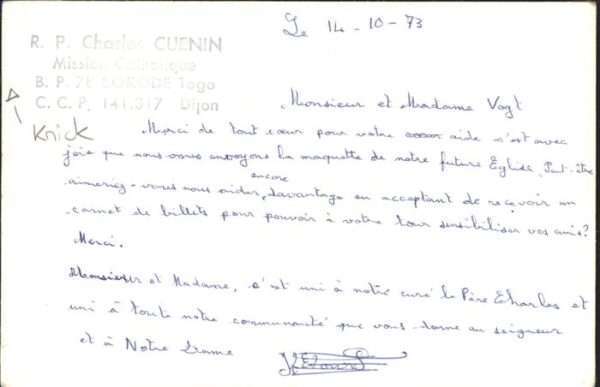 Le 14-10-73
R. P. Charles CUENIN
Mission Catholique
B. P. SOKODE Togo
C. C. P. 141.317 Dijon
Knick
Monsieur et Madame Vogt
Merci de tout cœur pour votre aide c'est avec
joie que nous vous envoyons la maquette de notre future Eglise. Peut-être
aimeriez-vous nous aider, encore davantage en acceptant de recevoir un
carnet de billets pour pouvoir à votre tour sensibiliser vos amis?
Merci.
Monsieur et Madame, c'est uni à notre curé le Père Charles et
uni à toute notre communauté que vous donne au seigneur
et à Notre Dame